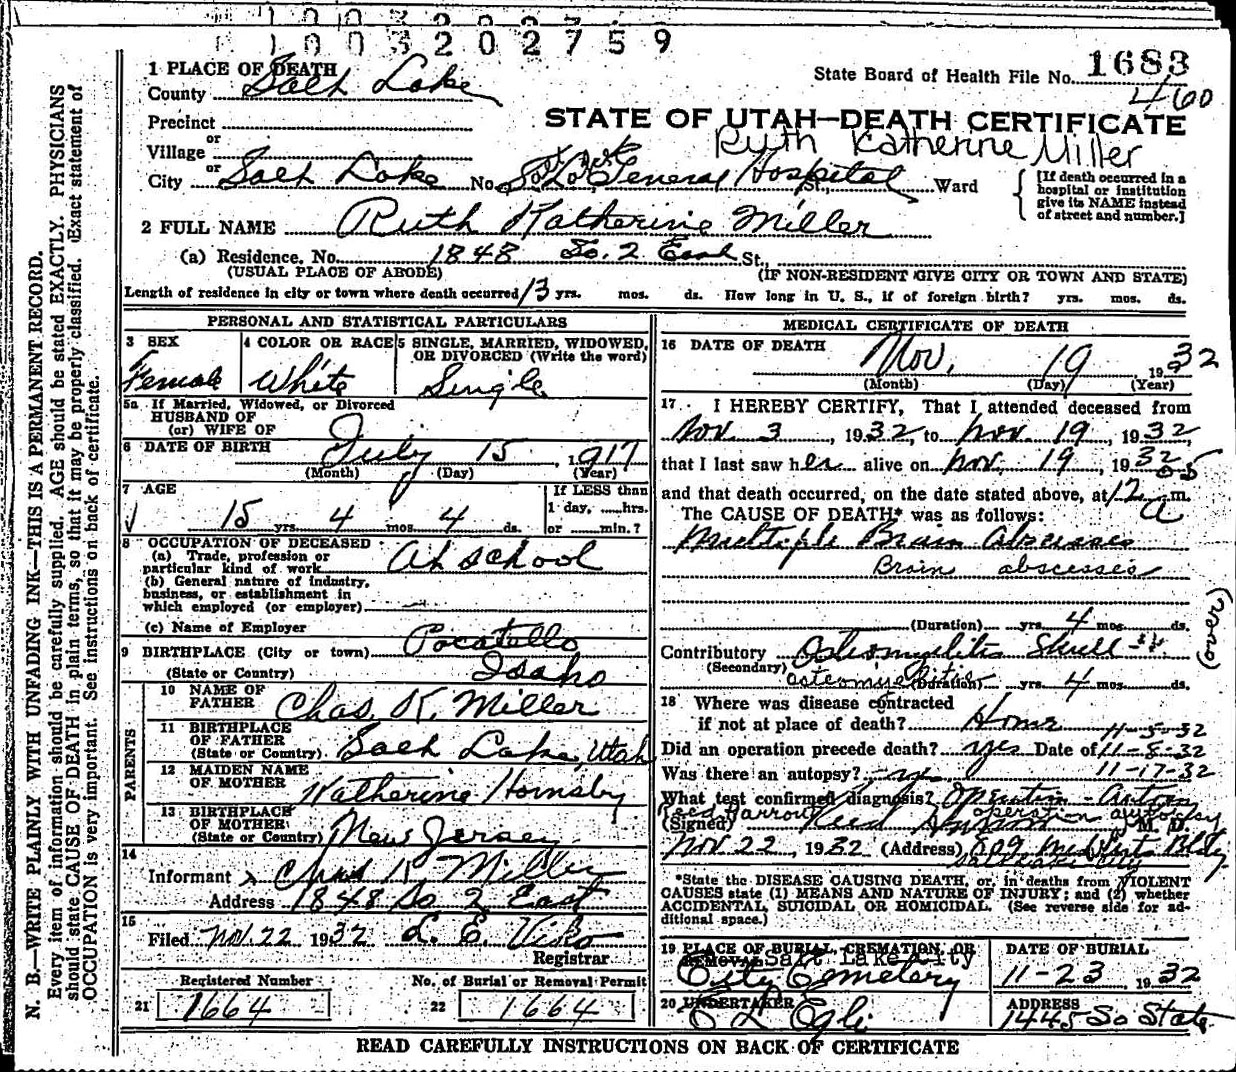 1003202759
1683
State Board of Health File No.
460
1 PLACE OF DEATH
County Salt Lake
STATE OF UTAH—DEATH CERTIFICATE
Precinct
Ruth Katherine Miller
or
Village
or
City Salt Lake No. General Hospital St., Ward
[If death occurred in a hospital or institution give its NAME instead of street and number.]
2 FULL NAME Ruth Katherine Miller
(a) Residence. No. 1848 So. 2 East St.
(USUAL PLACE OF ABODE) (IF NON-RESIDENT GIVE CITY OR TOWN AND STATE)
Length of residence in city or town where death occurred 13 yrs. mos. ds. How long in U. S., if of foreign birth? yrs. mos. ds.
PERSONAL AND STATISTICAL PARTICULARS
3 SEX
Female
4 COLOR OR RACE
White
5 SINGLE, MARRIED, WIDOWED, OR DIVORCED (Write the word)
Single
5a If Married, Widowed, or Divorced
HUSBAND OF
(or) WIFE OF
6 DATE OF BIRTH July 15, 1917
(Month) (Day) (Year)
7 AGE
15 yrs. 4 mos. 4 ds.
If LESS than
1 day, ....hrs.
or ....min.?
8 OCCUPATION OF DECEASED
(a) Trade, profession or
particular kind of work At school
(b) General nature of industry,
business, or establishment in
which employed (or employer)
(c) Name of Employer
9 BIRTHPLACE (City or town) Pocatello
(State or Country) Idaho
PARENTS
10 NAME OF FATHER Chas. K. Miller
11 BIRTHPLACE OF FATHER (State or Country) Salt Lake, Utah
12 MAIDEN NAME OF MOTHER Katherine Hornsby
13 BIRTHPLACE OF MOTHER (State or Country) New Jersey
14
Informant Chas K Miller
Address 1848 So 2 East
15
Filed Nov. 22 1932 L. E. Viko
Registrar
Registered Number No. of Burial or Removal Permit
21 1664 22 1664
MEDICAL CERTIFICATE OF DEATH
16 DATE OF DEATH Nov. 19 1932
(Month) (Day) (Year)
17 I HEREBY CERTIFY, That I attended deceased from
Nov. 3, 1932, to Nov. 19, 1932,
that I last saw her alive on Nov. 19, 1932
and that death occurred, on the date stated above, at 12 05 a m.
The CAUSE OF DEATH* was as follows:
Multiple Brain Abscesses
Brain abscesses
(Duration) yrs. 4 mos. ds.
Contributory Osteomyelitis Skull
(Secondary) (Duration) yrs. 4 mos. ds.
(over)
18 Where was disease contracted
if not at place of death? Home
11-5-32
Did an operation precede death? yes Date of 11-8-32
11-17-32
Was there an autopsy?
What test confirmed diagnosis? Operation - Autopsy
operation autopsy
(Signed) Reed Harrow M. D.
Nov 22, 1932 (Address) 809 Med Arts Bldg
Salt Lake City
*State the DISEASE CAUSING DEATH, or, in deaths from VIOLENT
CAUSES state (1) MEANS AND NATURE OF INJURY; and (2) whether
ACCIDENTAL, SUICIDAL OR HOMICIDAL. (See reverse side for ad-
ditional space.)
19 PLACE OF BURIAL, CREMATION, OR REMOVAL
Salt Lake City
City Cemetery
DATE OF BURIAL
11-23, 1932
20 UNDERTAKER
E L Egli
ADDRESS
1445 So State
READ CAREFULLY INSTRUCTIONS ON BACK OF CERTIFICATE
N. B.—WRITE PLAINLY WITH UNFADING INK—THIS IS A PERMANENT RECORD.
Every item of information should be carefully supplied. AGE should be stated EXACTLY. PHYSICIANS
should state CAUSE OF DEATH in plain terms, so that it may be properly classified. Exact statement of
OCCUPATION is very important. See instructions on back of certificate.